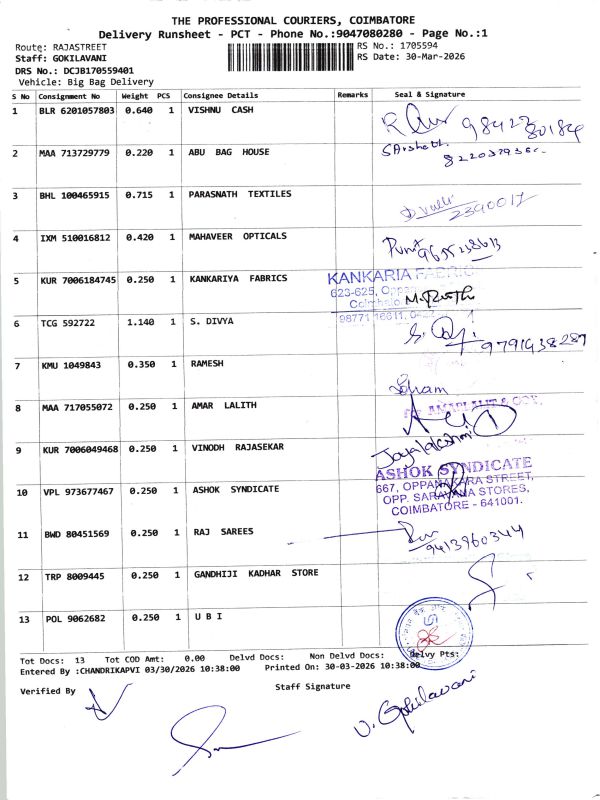 THE PROFESSIONAL COURIERS, COIMBATORE
Delivery Runsheet - PCT - Phone No.:9047080280 - Page No.:1
Route: RAJASTREET
RS No.: 1705594
Staff: GOKILAVANI
RS Date: 30-Mar-2026
DRS No.: DCJB170559401
Vehicle: Big Bag Delivery
S No Consignment No Weight PCS Consignee Details Remarks Seal & Signature
1 BLR 6201057803 0.640 1 VISHNU CASH
2 MAA 713729779 0.220 1 ABU BAG HOUSE
3 BHL 100465915 0.715 1 PARASNATH TEXTILES 2390017
4 IXM 510016812 0.420 1 MAHAVEER OPTICALS
5 KUR 7006184745 0.250 1 KANKARIYA FABRICS KANKARIA
623-625,
6 TCG 592722 1.140 1 S. DIVYA
7 KMU 1049843 0.350 1 RAMESH
8 MAA 717055072 0.250 1 AMAR LALITH
9 KUR 7006049468 0.250 1 VINODH RAJASEKAR
ASHOK SYNDICATE
667, OPPANAKARA STREET,
OPP. SARAVANA STORES,
COIMBATORE - 641001.
10 VPL 973677467 0.250 1 ASHOK SYNDICATE
11 BWD 80451569 0.250 1 RAJ SAREES 9413960344
12 TRP 8009445 0.250 1 GANDHIJI KADHAR STORE
13 POL 9062682 0.250 1 U B I
Tot Docs: 13 Tot COD Amt: 0.00 Delvd Docs: Non Delvd Docs: Delvy Pts:
Entered By :CHANDRIKAPVI 03/30/2026 10:38:00 Printed On: 30-03-2026 10:38:00
Verified By
Staff Signature
V. Gokilavani